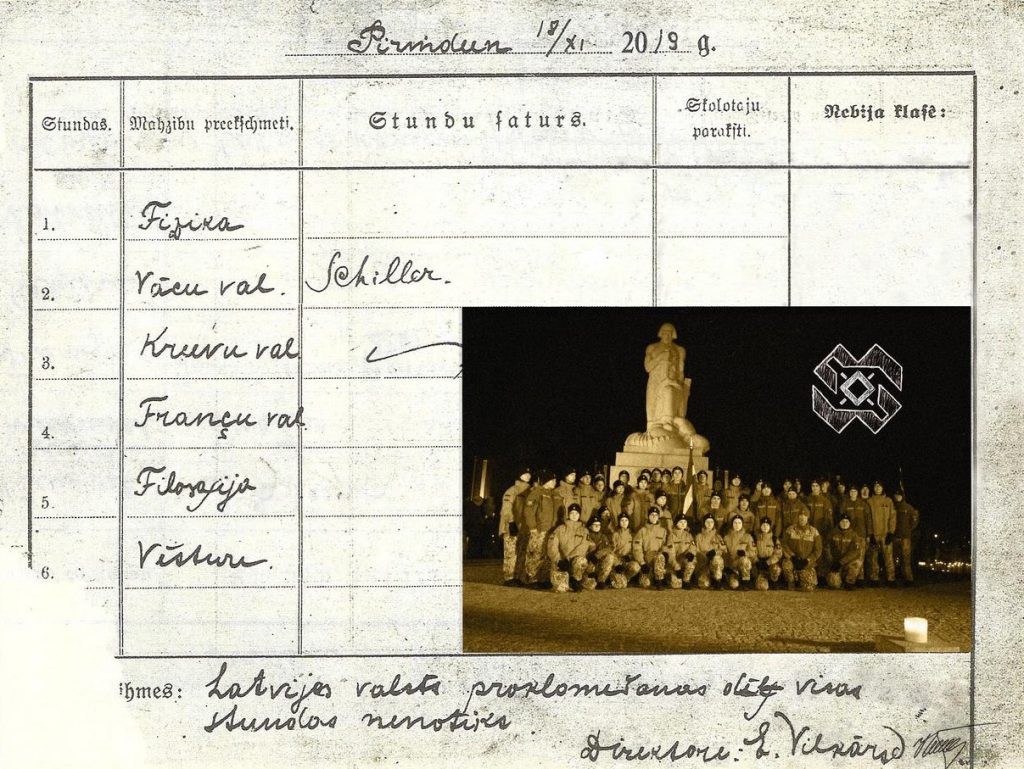 Pirmdien 18/XI 2019 g.
Stundas. Mahzibu preekschmeti. Stundu saturs. Skolotaju paraksti. Nebija klasē:
1. Fizika
2. Vācu val. Schiller.
3. Krievu val
4. Franču val
5. Filosofija
6. Vēsture.
ihmes: Latvijas valsts proklomēšanas dēļ visas
stundas nenotiks
Direktore: E. Vilkārse